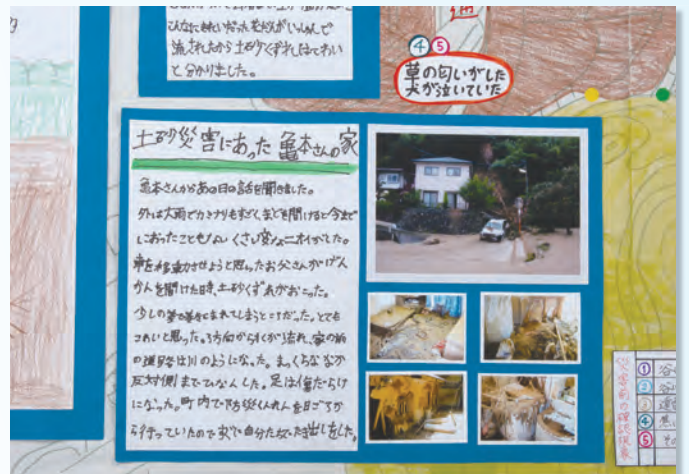 流されたから土砂くずれしはこわい
と分かりました。
④⑤
草の匂いがした
犬が泣いていた
土砂災害にあった亀本さんの家
亀本さんからあの日の話を聞きました。
外は大雨でカミナリもすごく、まどを開けると今まで
においったこともない くさい変なニオイがした。
車を移動させようと思ったお父さんがげん
かんを開けた時、土砂くずれがおこった。
少しの差でまきこまれてしまうところだった。とても
こわいと思った。3方向から水が流れ、家の前
の道路は川のようになった。まっくらななか
反対側までひなんした。足は傷だらけ
になった。町内で防災くんれんを日ごろか
ら行っていたので家で自分たちでたき出しをした。
災害前の確認現象
①
②
③
④
⑤